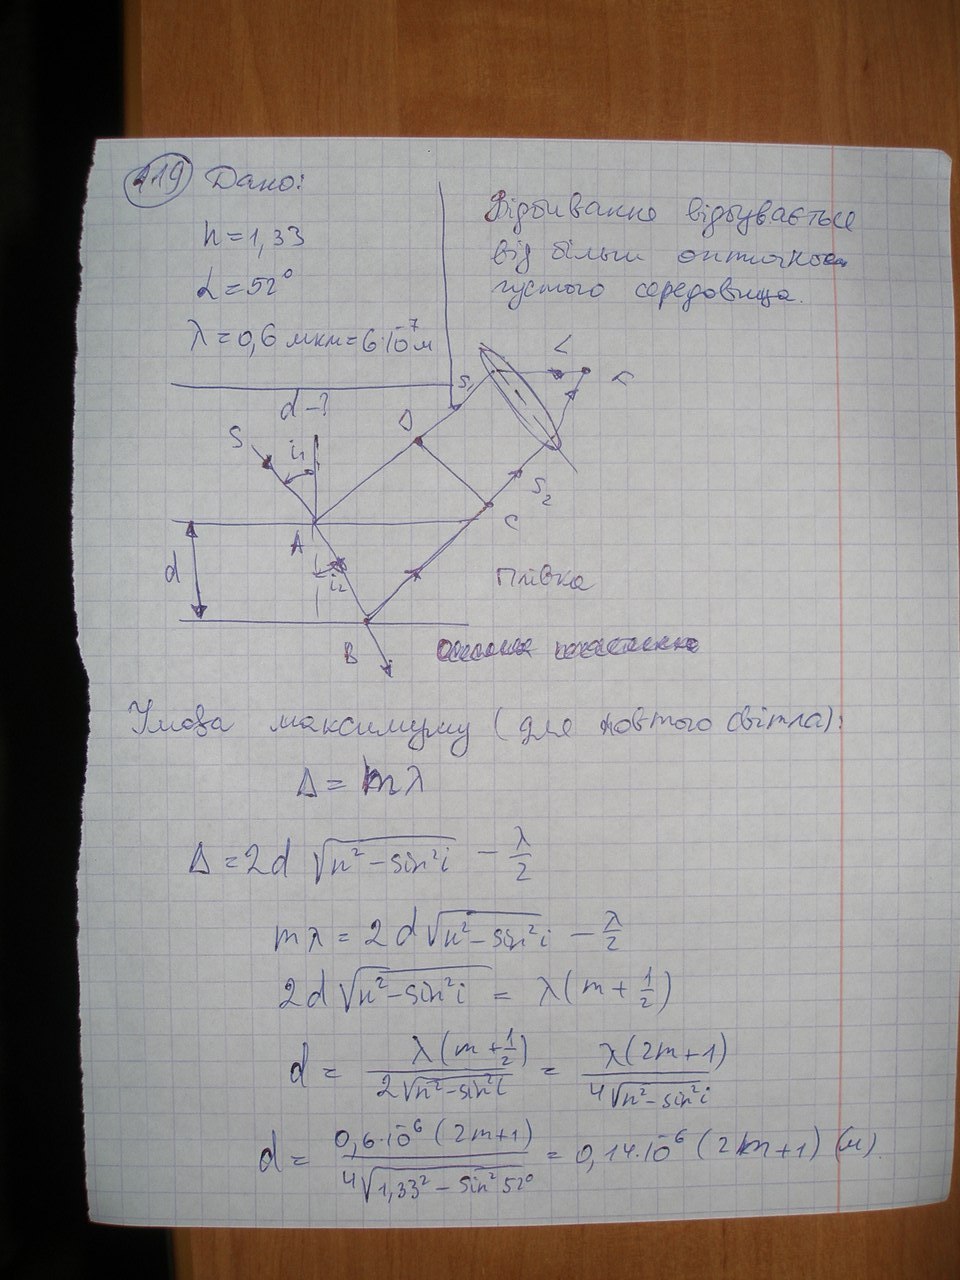 1.19 Дано:
n=1,33
α=52°
λ=0,6 мкм=6·10⁻⁷м
d-?
Відбивання відбувається
від більш оптично
густого середовища.
S
i₁
A
D
S₁
L
F
S₂
C
d
i₂
B
Плівка
Умова максимуму (для жовтого світла):
Δ = mλ
Δ = 2d √(n²-sin²i) - λ/2
mλ = 2d√(n²-sin²i) - λ/2
2d√(n²-sin²i) = λ(m+1/2)
d = λ(m+1/2)/(2√(n²-sin²i)) = λ(2m+1)/(4√(n²-sin²i))
d = 0,6·10⁻⁶(2m+1)/(4√(1,33²-sin²52°)) = 0,14·10⁻⁶(2m+1) (м).